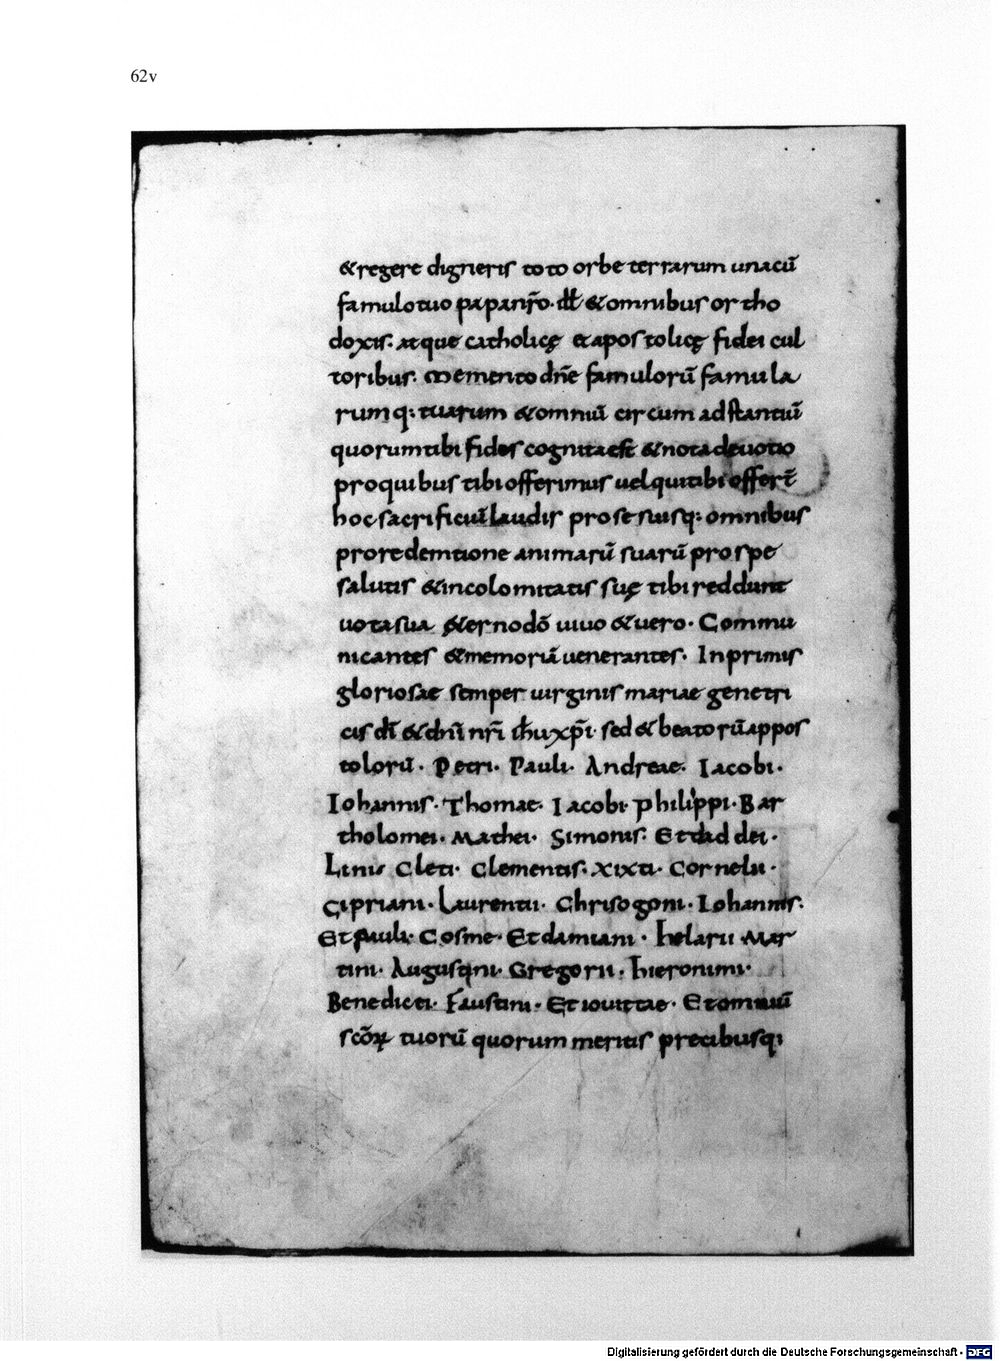 62v
& regere digneris toto orbe terrarum una cū
famulo tuo papa nr̄o · ill̄ & omnibus ortho
doxis · atque catholicę et apostolicę fidei cul
toribus · Memento dn̄e famulorū famula
rumq: tuarum & omniū circum adstantiū
quorum tibi fides cognita est & nota deuotio
pro quibus tibi offerimus uel qui tibi offert̄
hoc sacrificiū laudis pro se suisq: omnibus
pro redemtione animarū suarū pro spe
salutis & incolomitatis suę tibi reddunt
uota sua &erno dō uiuo & uero · Commu
nicantes & memoriā uenerantes · In primis
gloriosae semper uirginis mariae genetri
cis dī & dn̄i nr̄i ih̄u xp̄i · sed & beatorū appos
tolorū · Petri · Pauli · Andreae · Iacobi ·
Iohannis · Thomae · Iacobi · Philippi · Bar
tholomei · Mathei · Simonis · Et taddei ·
Linis Cleti · Clementis · xixti · Cornelii ·
Cipriani · Laurentii · Chrisogoni · Iohannis ·
Et pauli · Cosme · Et damiani · helarii Mar
tini · Augustini · Gregorii · hieronimi ·
Benedicti · Faustini · Et iouittae · Et omniū
scōꝝ tuorū quorum meritis precibusq:
Digitalisierung gefördert durch die Deutsche Forschungsgemeinschaft - DFG